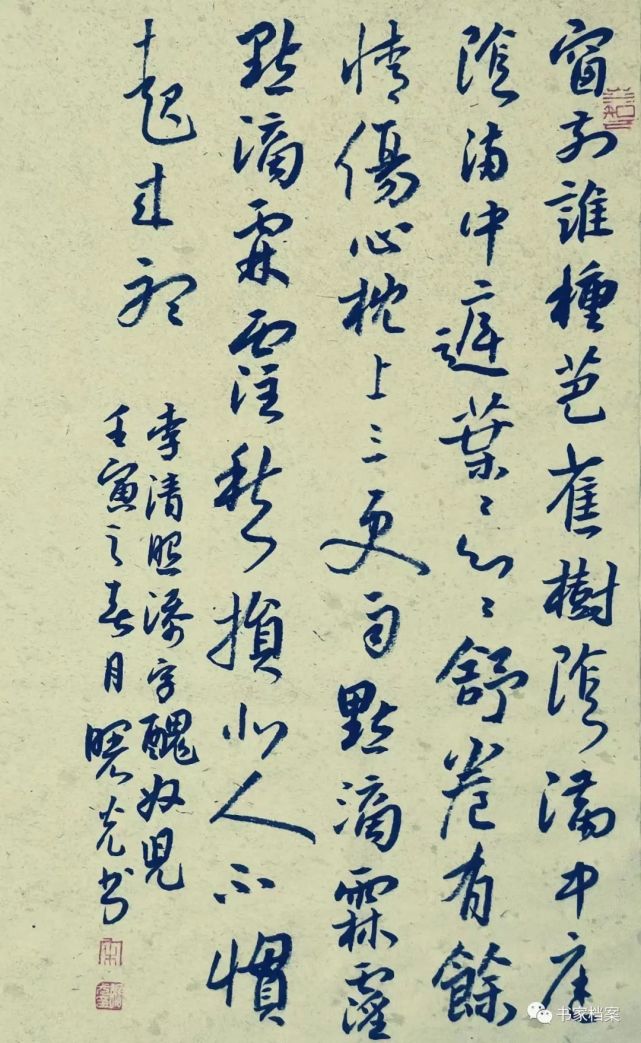 窗前誰種芭蕉樹陰滿中庭
陰滿中庭葉〻心〻舒卷有餘
情傷心枕上三更雨點滴霖霪
點滴霖霪愁損北人不慣
起來聽
李清照添字醜奴兒
壬寅之春月曙光书
书家档案